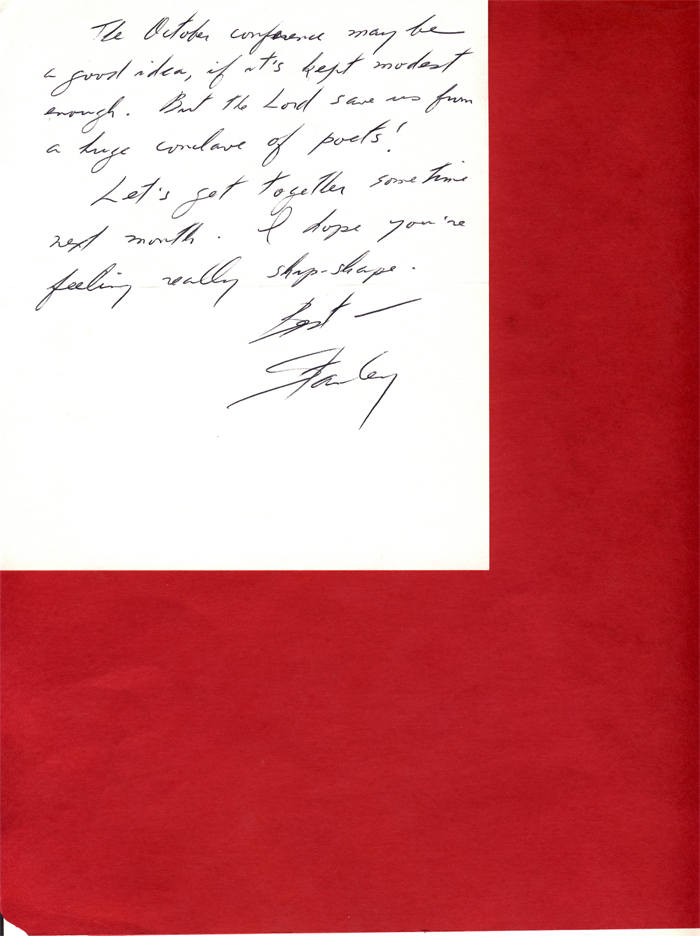 The October conference may be
a good idea, if it's kept modest
enough. But the Lord save us from
a huge conclave of poets!
Let's get together some time
next month. I hope you're
feeling really ship-shape.
Best —
Stanley